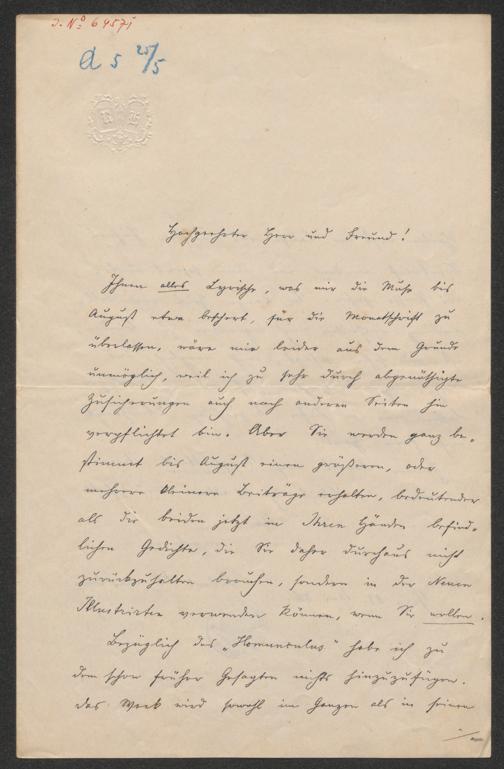 J. Nº 64571
A 5 25/5
R H
Hochgeehrter Herr und Freund!
Ihnen alles Lyrische, was mir die Muse bis
August etwa beschert, für die Monatschrift zu
überlassen, wäre mir leider aus dem Grunde
unmöglich, weil ich zu sehr durch abgenöthigte
Zusicherungen auch nach anderen Seiten hin
verpflichtet bin. Aber Sie werden ganz be-
stimmt bis August einen größeren, oder
mehrere kleinere Beiträge erhalten, bedeutender
als die beiden jetzt in Ihren Händen befind-
lichen Gedichte, die Sie daher durchaus nicht
zurückzuhalten brauchen, sondern in der Neuen
Illustrirten verwenden können, wenn Sie wollen.
Bezüglich des „Homunculus" habe ich zu
dem schon früher Gesagten nichts hinzuzufügen.
Das Werk wird sowohl im Ganzen als in seinen